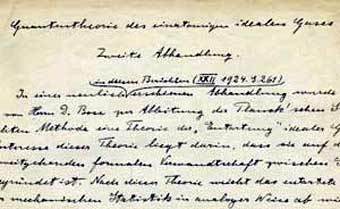 Quantentheorie des einatomigen idealen Gases
Zweite Abhandlung.
in diesen Berichten (XXII 1924. S. 261)
In einer neulich erschienenen Abhandlung wurde
von Herrn D. Bose zur Ableitung der Planck'schen
Methode eine Theorie der „Entartung" idealer
Interesse dieser Theorie liegt darin, dass sie auf d
weitgehenden formalen Verwandtschaft zwischen
gegründet ist. Nach dieser Theorie weicht das entartete
mechanischen Statistik in analoger Weise ab wie